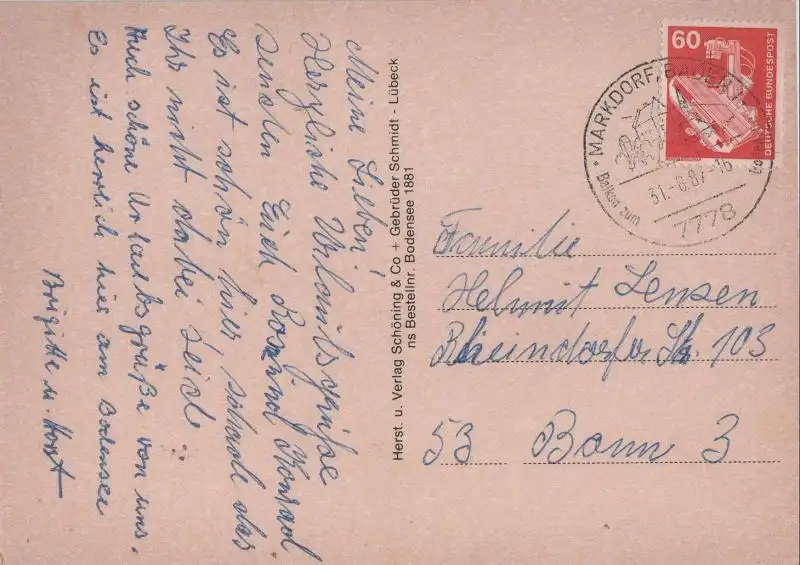 Meine Lieben!
Herzliche Urlaubsgrüße
senden Euch Rosi und Konrad
Es ist schön hier schade das
Ihr nicht dabei seid...
Auch schöne Urlaubsgrüße von uns.
Es ist herrlich hier am Bodensee
Brigitte u. Horst
Herst. u. Verlag Schöning & Co + Gebrüder Schmidt - Lübeck
ns Bestellnr. Bodensee 1881
60
DEUTSCHE BUNDESPOST
MARKDORF, BADEN
Balkon zum
31.-8.87-16
7778
Familie
Helmut Jensen
Rheindorfer Str. 103
53 Bonn 3